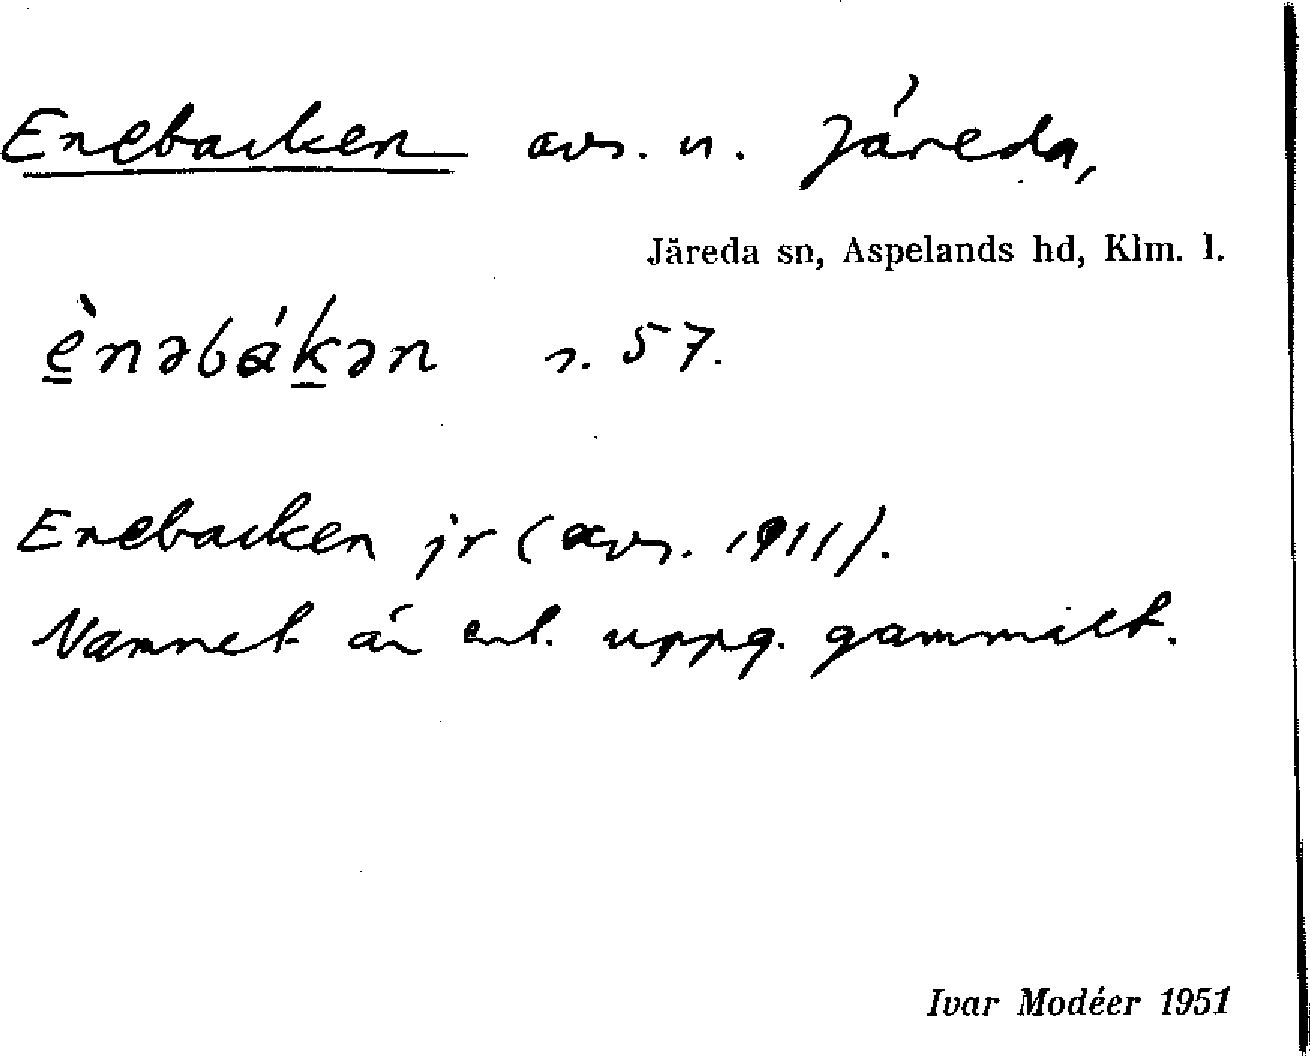 Enebacken avs. u. Järeda,
Järeda sn, Aspelands hd, Klm. l.
è̱nəbáḵən s. 57.
Enebacken jr (avs. 1911).
Namnet är enl. uppg. gammalt.
Ivar Modéer 1951